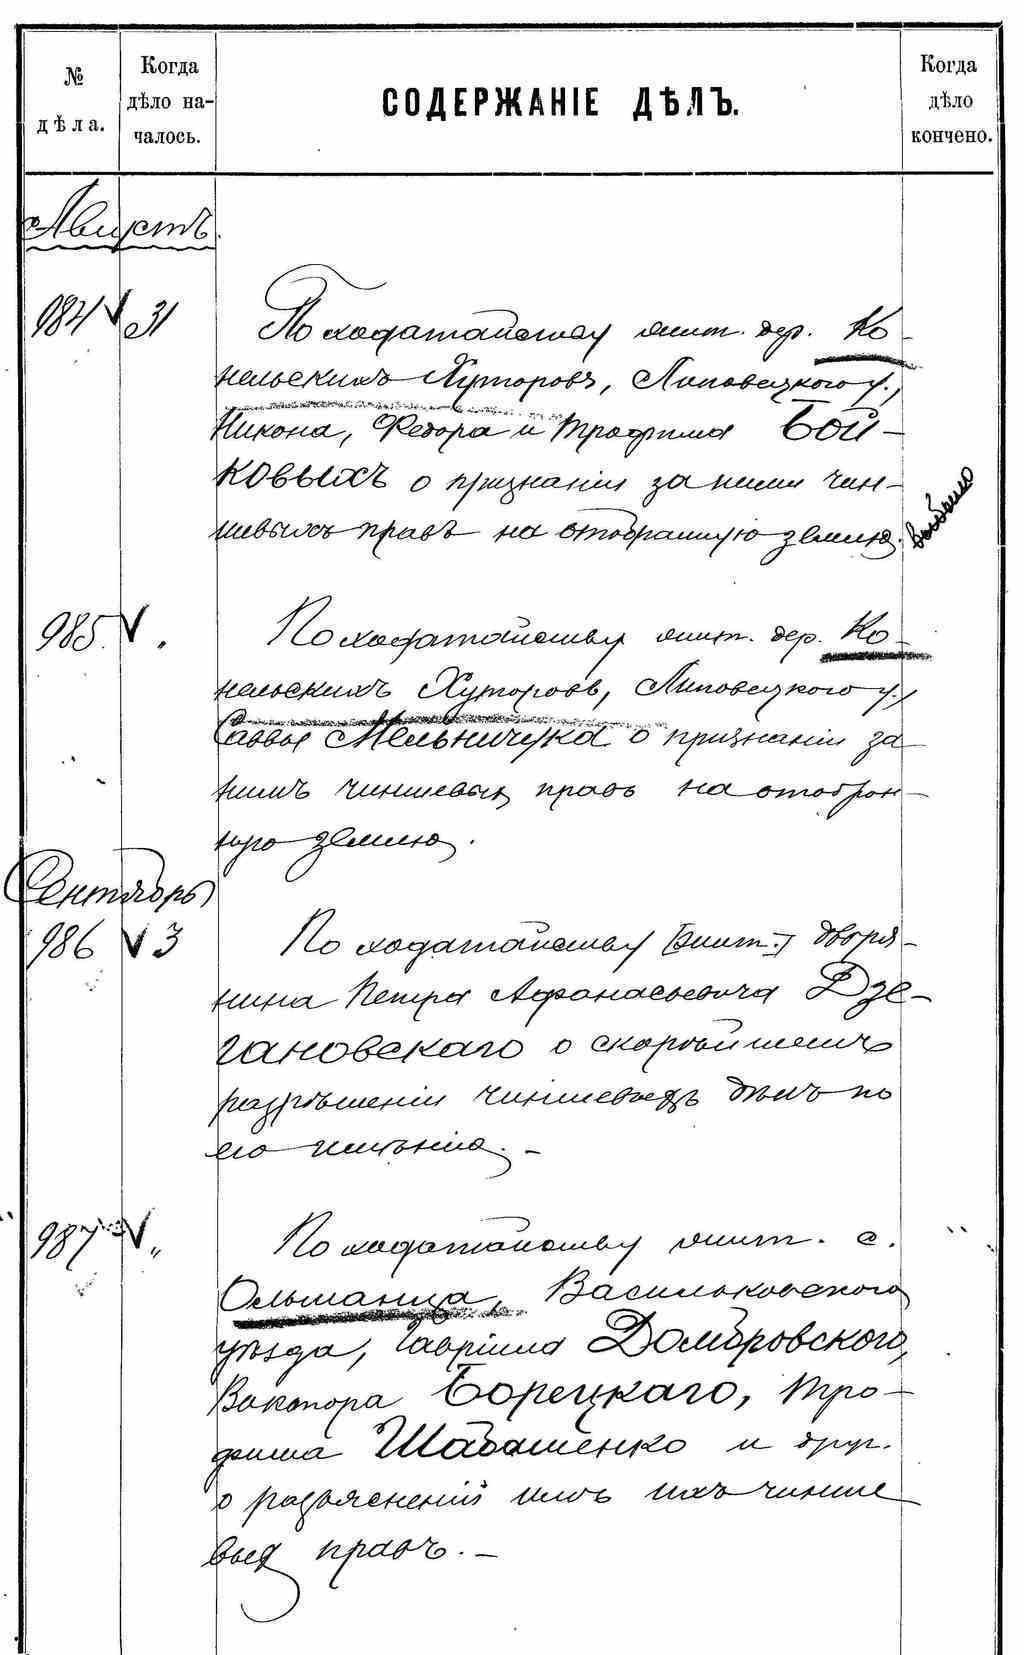 № дѣла.
Когда дѣло на-чалось.
СОДЕРЖАНІЕ ДѢЛЪ.
Когда дѣло кончено.
Августъ.
984 V 31 По ходатайству жит. дер. Ко-
нельскихъ Хуторовъ, Липовецкого у.,
Никона, Федора и Трофима Бой-
ковыхъ о признаніи за ними чин-
шевыхъ правъ на отобранную землю.
выбыло
985. V . По ходатайству жит. дер. Ко-
нельскихъ Хуторовъ, Липовецкого у.,
Саввы Мельничука о признаніи за
нимъ чиншевых правъ на отобран-
ную землю.
Сентябрь
986 V 3 По ходатайству дворя-
нина Петра Афанасьевича Дзе-
гановскаго о скорѣйшемъ
разрѣшеніи чиншевыхъ дѣлъ по
его имѣнію. -
987 V „ По ходатайству жит. с.
Ольшаница, Васильковского
уѣзда, Гавріила Домбровского,
Виктора Борецкаго, Тро-
фима Шабашенко и друг.
о разъясненіи имъ ихъ чинше
вых правъ. -